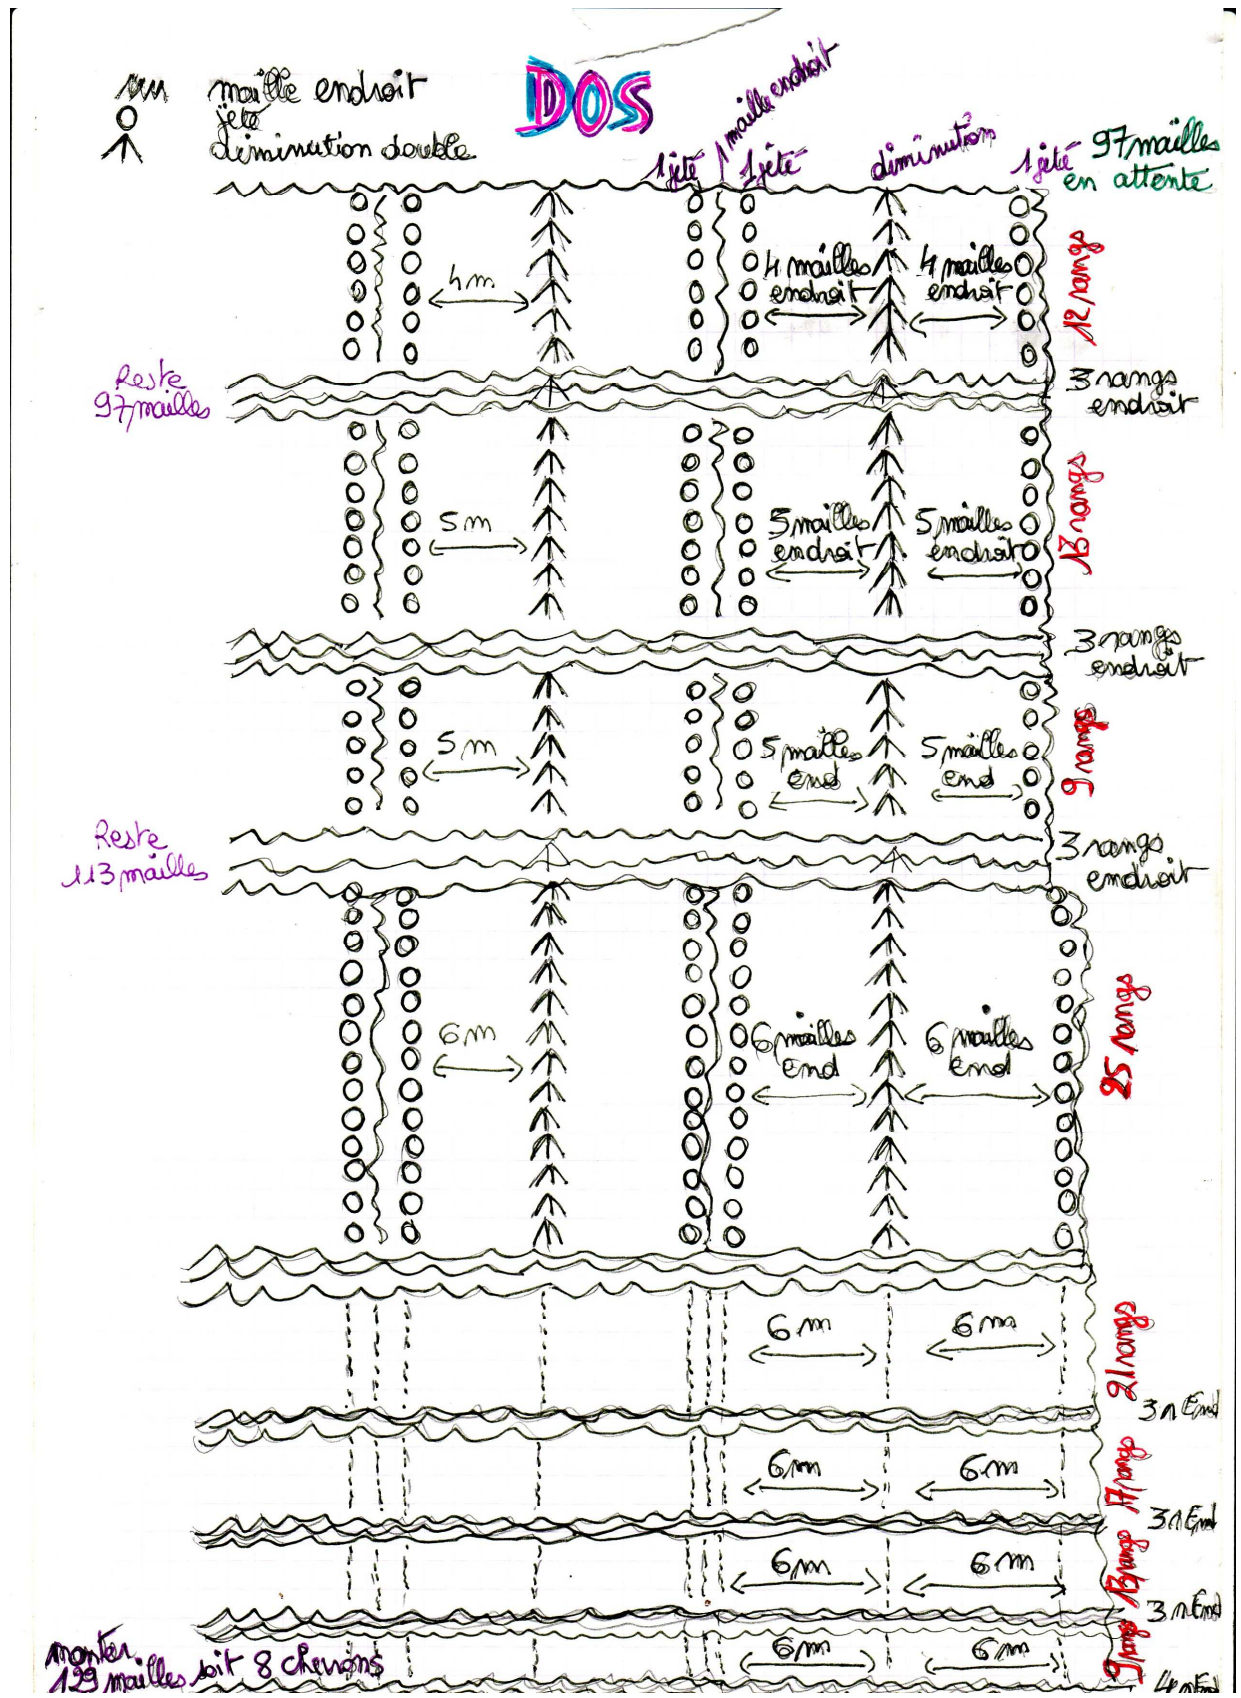 maille endroit
jeté
diminution double
DOS
1 jeté
maille endroit
1 jeté
diminution
1 jeté
97 mailles
en attente
4 m
4 mailles
endroit
4 mailles
endroit
12 rangs
Reste
97 mailles
3 rangs
endroit
5 m
5 mailles
endroit
5 mailles
endroit
13 rangs
3 rangs
endroit
5 m
5 mailles
end
5 mailles
end
9 rangs
Reste
113 mailles
3 rangs
endroit
6 m
6 mailles
end
6 mailles
end
25 rangs
6 m
6 m
21 rangs
3 r End
6 m
6 m
17 rangs
3 r End
6 m
6 m
13 rangs
3 r End
6 m
6 m
9 rangs
monter
129 mailles soit 8 chevrons
4 r End